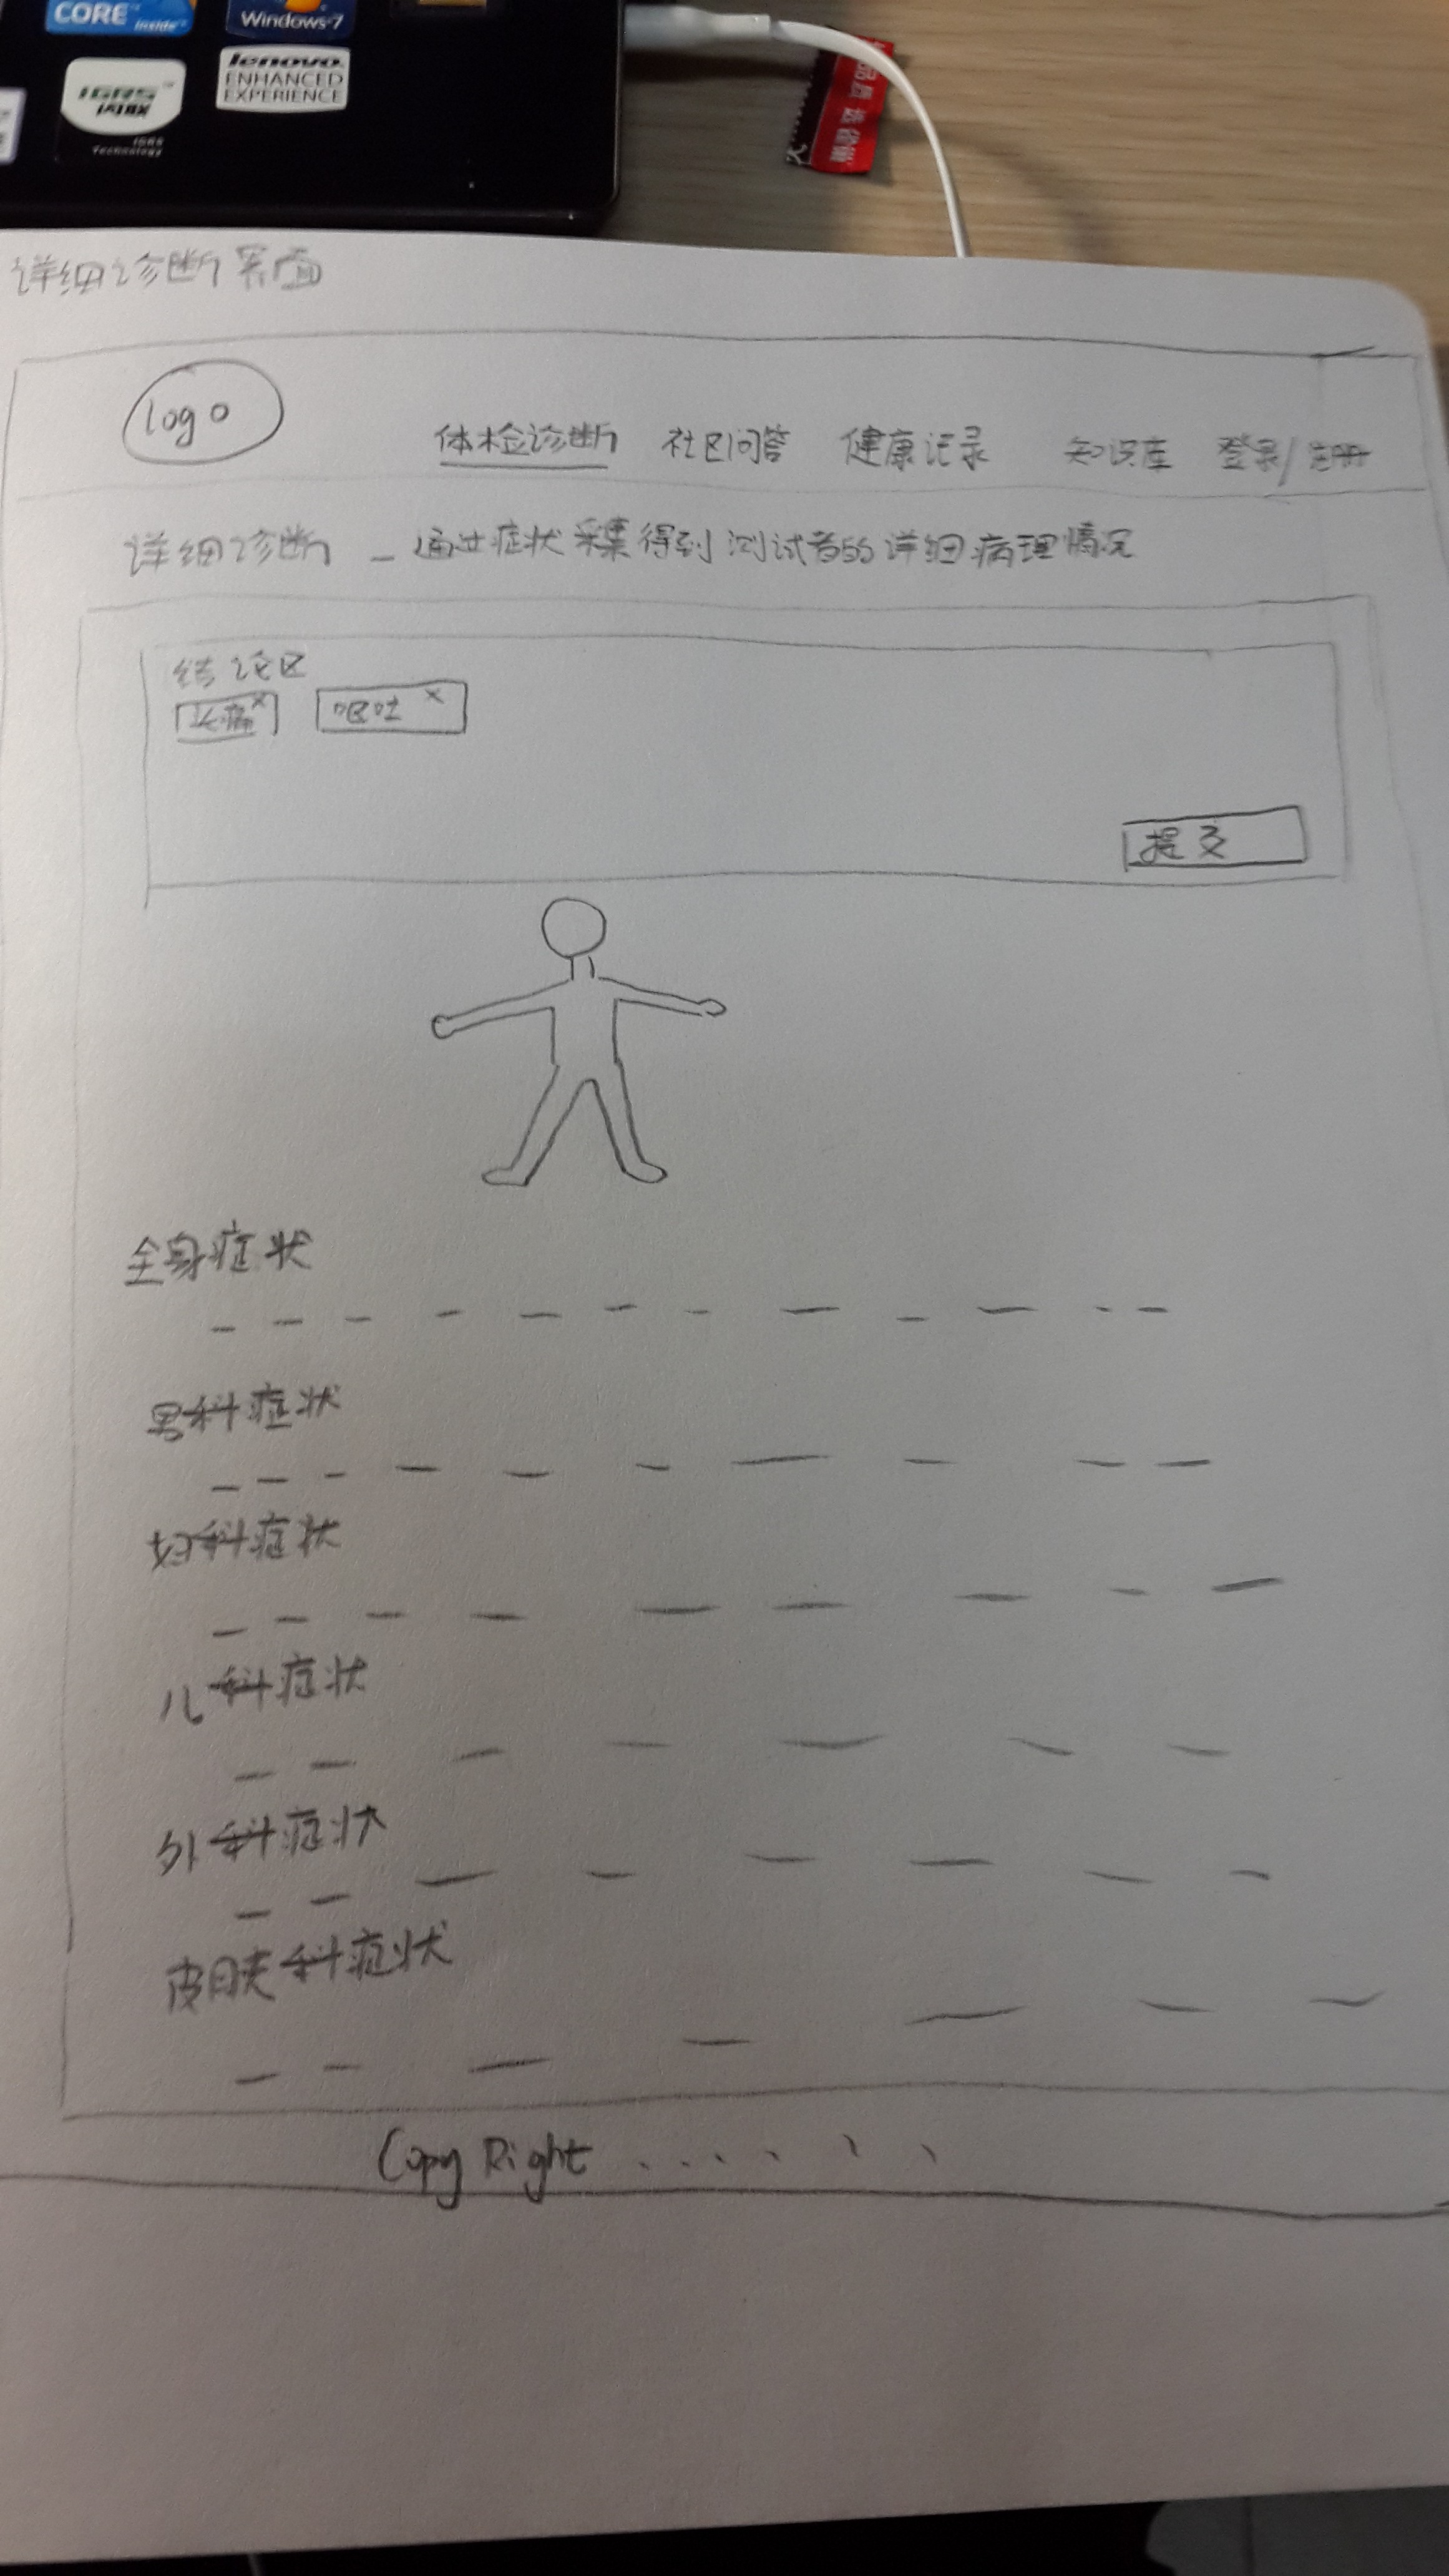 CORE inside
Windows 7
IGRS 闪联
IGRS Technology
lenovo
ENHANCED
EXPERIENCE
详细诊断界面
logo
体检诊断 社区问答 健康记录 知识库 登录/注册
详细诊断 - 通过症状采集得到测试者的详细病理情况
结论区
头痛 x 呕吐 x
提交
全身症状
男科症状
妇科症状
儿科症状
外科症状
皮肤科症状
Copy Right ......